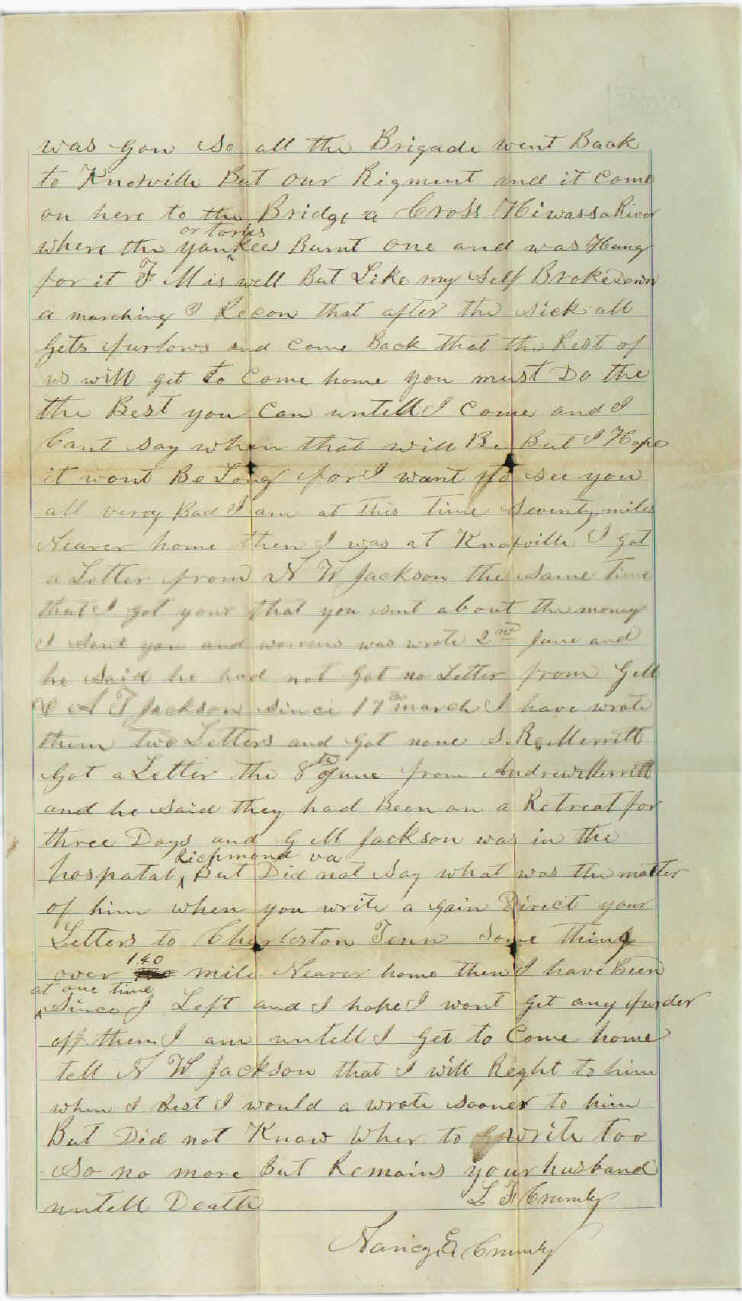 was gon So all the Brigade went Back
to Knoxville But our Rigment and it come
on here to the Bridge a Cross Hiwassa River
or tories
where the yankees Burnt one and was Hung
for it F M is well But Like my Self Broke down
a marching I Recon that after the sick all
gets furlows and come Back that the Rest of
us will get to come home you must Do the
the Best you can untell I come and I
Cant Say when that will Be But I Hope
it wont Be Long for I want to see you
all verry Bad I am at this time Seventy miles
Nearer home then I was at Knoxville I got
a Letter from N W Jackson the same time
that I got your that you sent about the money
I Sent you and was wrote 2nd June and
he Said he had not got no Letter from G M
& A T Jackson since 17th march I have wrote
them two Letters and got none S. R. Merritt
got a Letter the 8th June from Andrew Merritt
and he said they had Been on a Retreat for
three Days and G M Jackson was in the
Richmond va
hospatal But Did not Say what was the matter
of him when you write a gain Direct your
Letters to Charleston Tenn Some thing
140
over mile Nearer home then I have been
at one time
Since I Left and I hope I wont get any furder
off then I am untell I get to Come home
tell N W Jackson that I will Right to him
when I Rest I would a wrote sooner to him
But Did not Know wher to write too
So no more But Remains your husband
untell Death L F Crumly
Nancy E Crumly